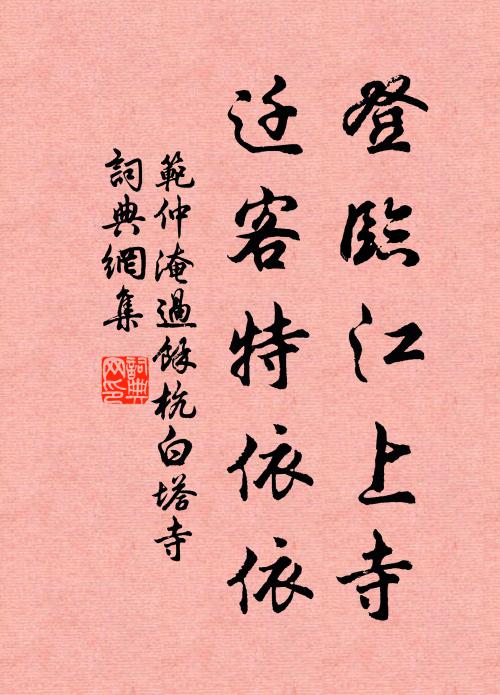 登臨江上寺
迁客特依依
範仲淹過餘杭白塔寺
詞典網集
詞典網印